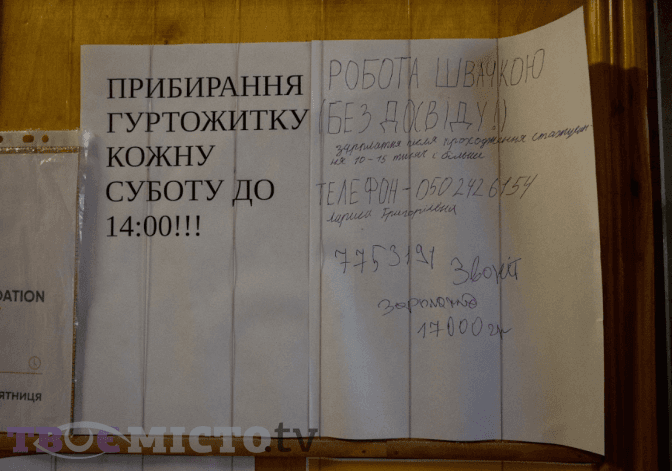 ПРИБИРАННЯ
ГУРТОЖИТКУ
КОЖНУ
СУБОТУ ДО
14:00!!!
РОБОТА ШВАЧКОЮ
(БЕЗ ДОСВІДУ!)
зарплатня після проходження стажуван-
ня 10-15 тисяч і більше
ТЕЛЕФОН - 050 242 6154
Лариса Григорівна
7753191
Звоніт
зарплата
17000 гр
DATION
ЯТНИЦЯ
ТВОЄМІСТО.tv